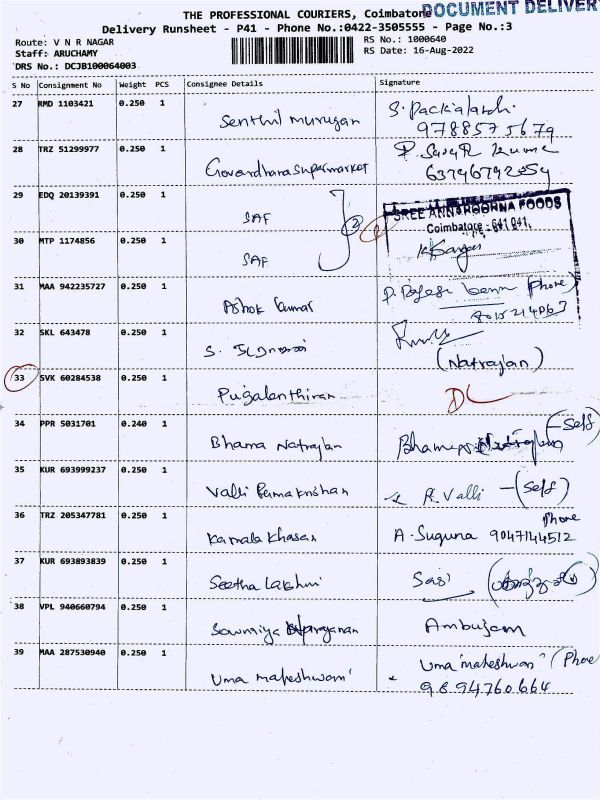 THE PROFESSIONAL COURIERS, Coimbatore
DOCUMENT DELIVERY
Delivery Runsheet - P41 - Phone No.:0422-3505555 - Page No.:3
Route: V N R NAGAR
RS No.: 1000640
Staff: ARUCHAMY
RS Date: 16-Aug-2022
DRS No.: DCJB100064003
S No Consignment No Weight PCS Consignee Details Signature
27 RMD 1103421 0.250 1
Senthil Murugan
9788575679
28 TRZ 51299977 0.250 1
Govardhana Supermarket
63796792059
29 EDQ 20139391 0.250 1
SAF
2
SREE ANNAPOORNA FOODS
Coimbatore - 641 041.
30 MTP 1174856 0.250 1
SAF
31 MAA 942235727 0.250 1
Ashok Kumar
(Phone)
32 SKL 643478 0.250 1
S.
(Natrajan)
33 SVK 60284538 0.250 1
Pugalenthiran
DL
34 PPR 5031701 0.240 1
Bhama Natrajan
(-Self)
35 KUR 693999237 0.250 1
Valli Ramakrishnan
R. Valli - (Self)
36 TRZ 205347781 0.250 1
Kamala Khasan
Phone
A. Suguna 9047144512
37 KUR 693893839 0.250 1
Seetha Lakshmi
Sasi
38 VPL 940660794 0.250 1
Sowmiya
Ambujam
39 MAA 287530940 0.250 1
Uma Maheshwari
Uma maheshwari (Phone
9894760664